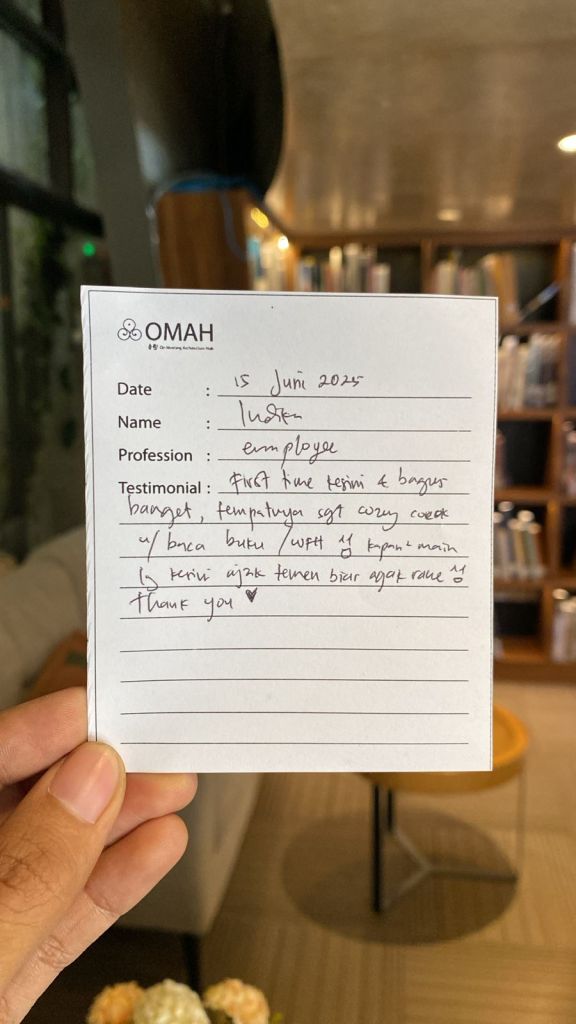 OMAH
Date : 15 Juni 2025
Name :
Profession : employee
Testimonial : First time kesini & bagus
banget, tempatnya sgt cozy cocok
u/ baca buku / WFH kapan² main
lg kesini ajak temen biar agak rame
Thank you ♥